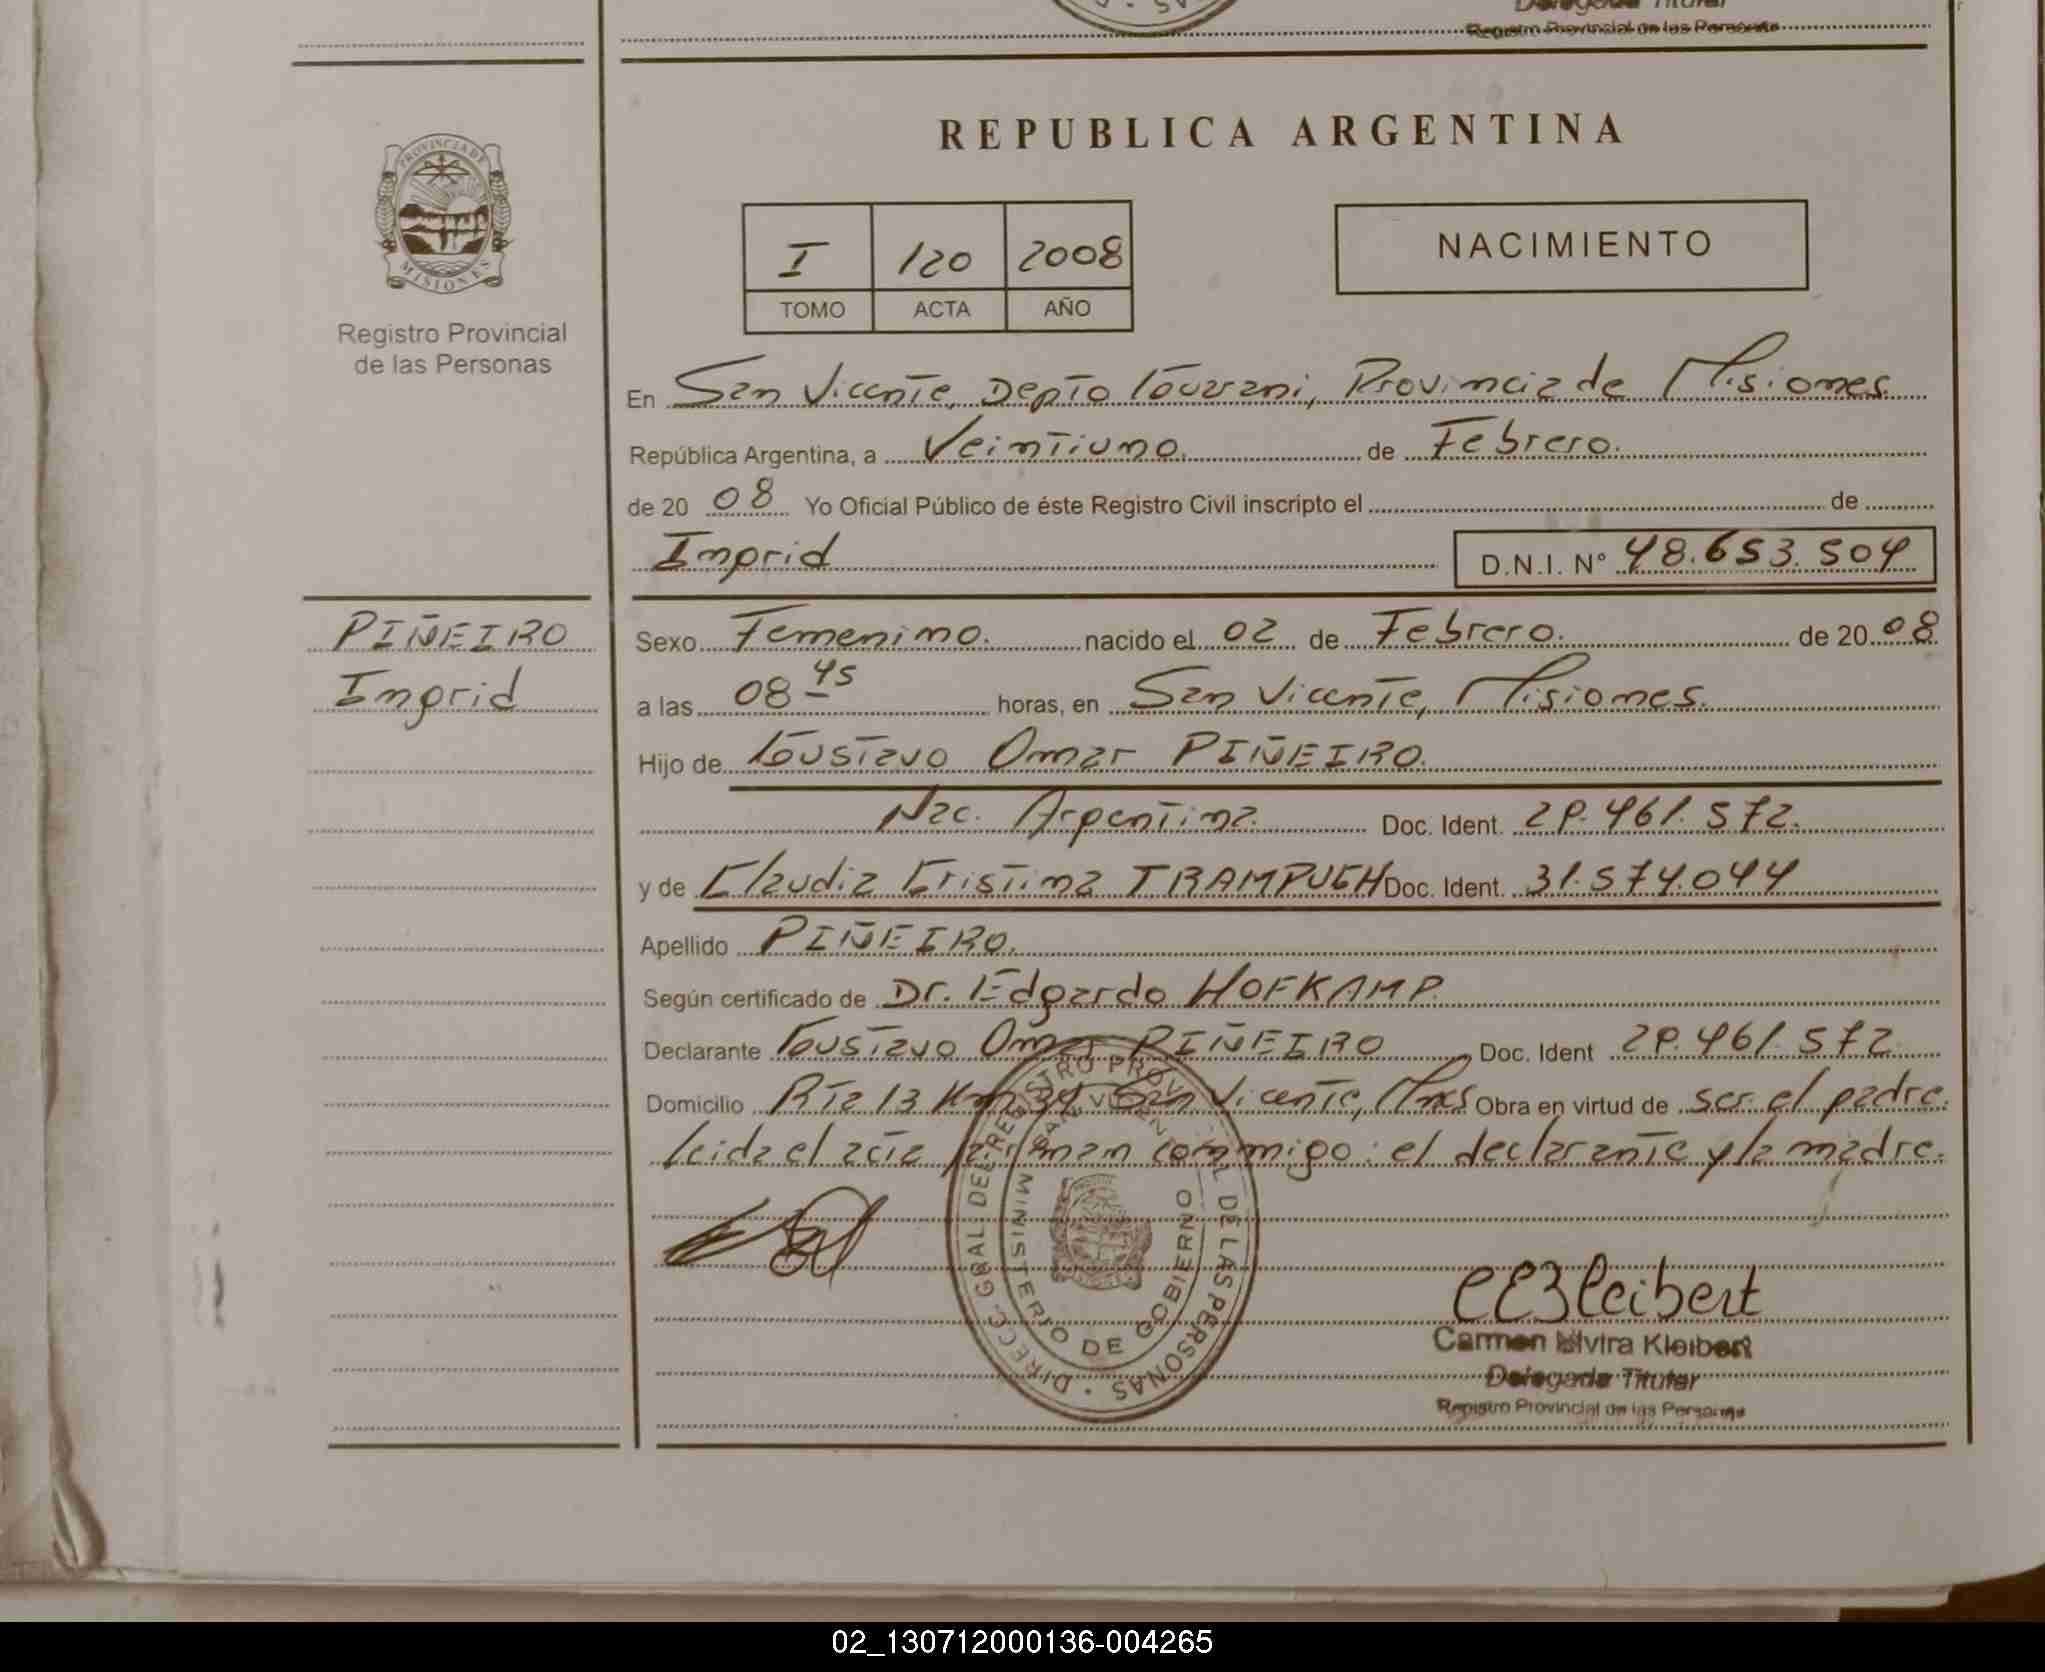 Delegada Titular
Registro Provincial de las Personas
REPUBLICA ARGENTINA
PROVINCIA DE MISIONES
Registro Provincial
de las Personas
I 120 2008
TOMO ACTA AÑO
NACIMIENTO
En San Vicente, Depto Guarani, Provincia de Misiones
República Argentina, a Veintiuno. de Febrero.
de 20 08 Yo Oficial Público de éste Registro Civil inscripto el de
Ingrid D.N.I. N° 48.653.504
PIÑEIRO
Ingrid
Sexo Femenino. nacido el 02 de Febrero. de 20 08
a las 08 45 horas, en San Vicente, Misiones.
Hijo de Gustavo Omar PIÑEIRO.
Nac. Argentina. Doc. Ident. 29.461.572.
y de Claudia Cristina TRAMPUCH Doc. Ident. 31.574.044
Apellido PIÑEIRO.
Según certificado de Dr. Edgardo HOFKAMP.
Declarante Gustavo Omar PIÑEIRO Doc. Ident 29.461.572
Domicilio Rta 13 Km 34 San Vicente, Mnes Obra en virtud de ser el padre.
Leida el acta la firman conmigo: el declarante y la madre.
DIRECC. GRAL DEL REGISTRO PROVINCIAL DE LAS PERSONAS
SAN VICENTE
MINISTERIO DE GOBIERNO
CEKleibert
Carmen Elvira Kleibert
Delegada Titular
Registro Provincial de las Personas
02_130712000136-004265